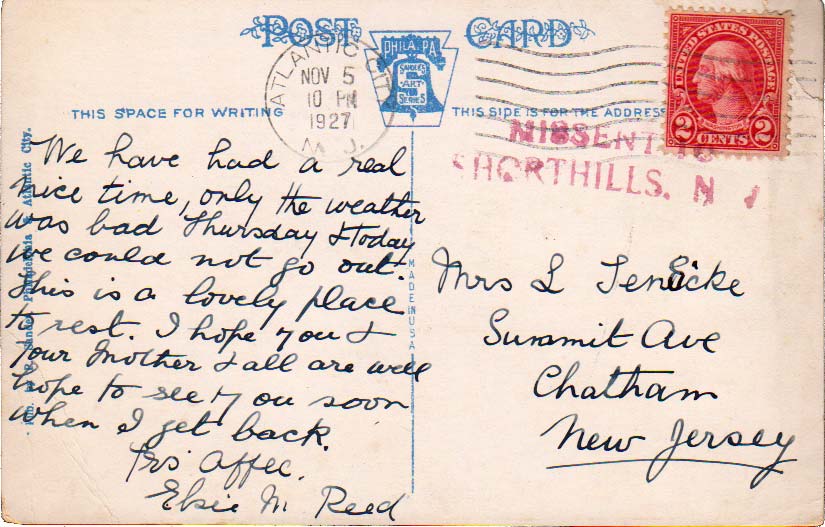 POST CARD
PHILA. PA.
SANDLE'S
ART
SERIES
ATLANTIC CITY
NOV 5
10 PM
1927
N. J.
UNITED STATES POSTAGE
2 CENTS 2
THIS SPACE FOR WRITING
THIS SIDE IS FOR THE ADDRESS
MISSENT TO
SHORTHILLS, N J
We have had a real
nice time, only the weather
was bad Thursday & Today
we could not go out.
This is a lovely place
to rest. I hope you &
your Mother & all are well
hope to see you soon
when I get back.
Yrs affec.
Elsie M. Reed
Mrs L
Summit Ave
Chatham
New Jersey
MADE IN U.S.A.
Philadelphia & Atlantic City.